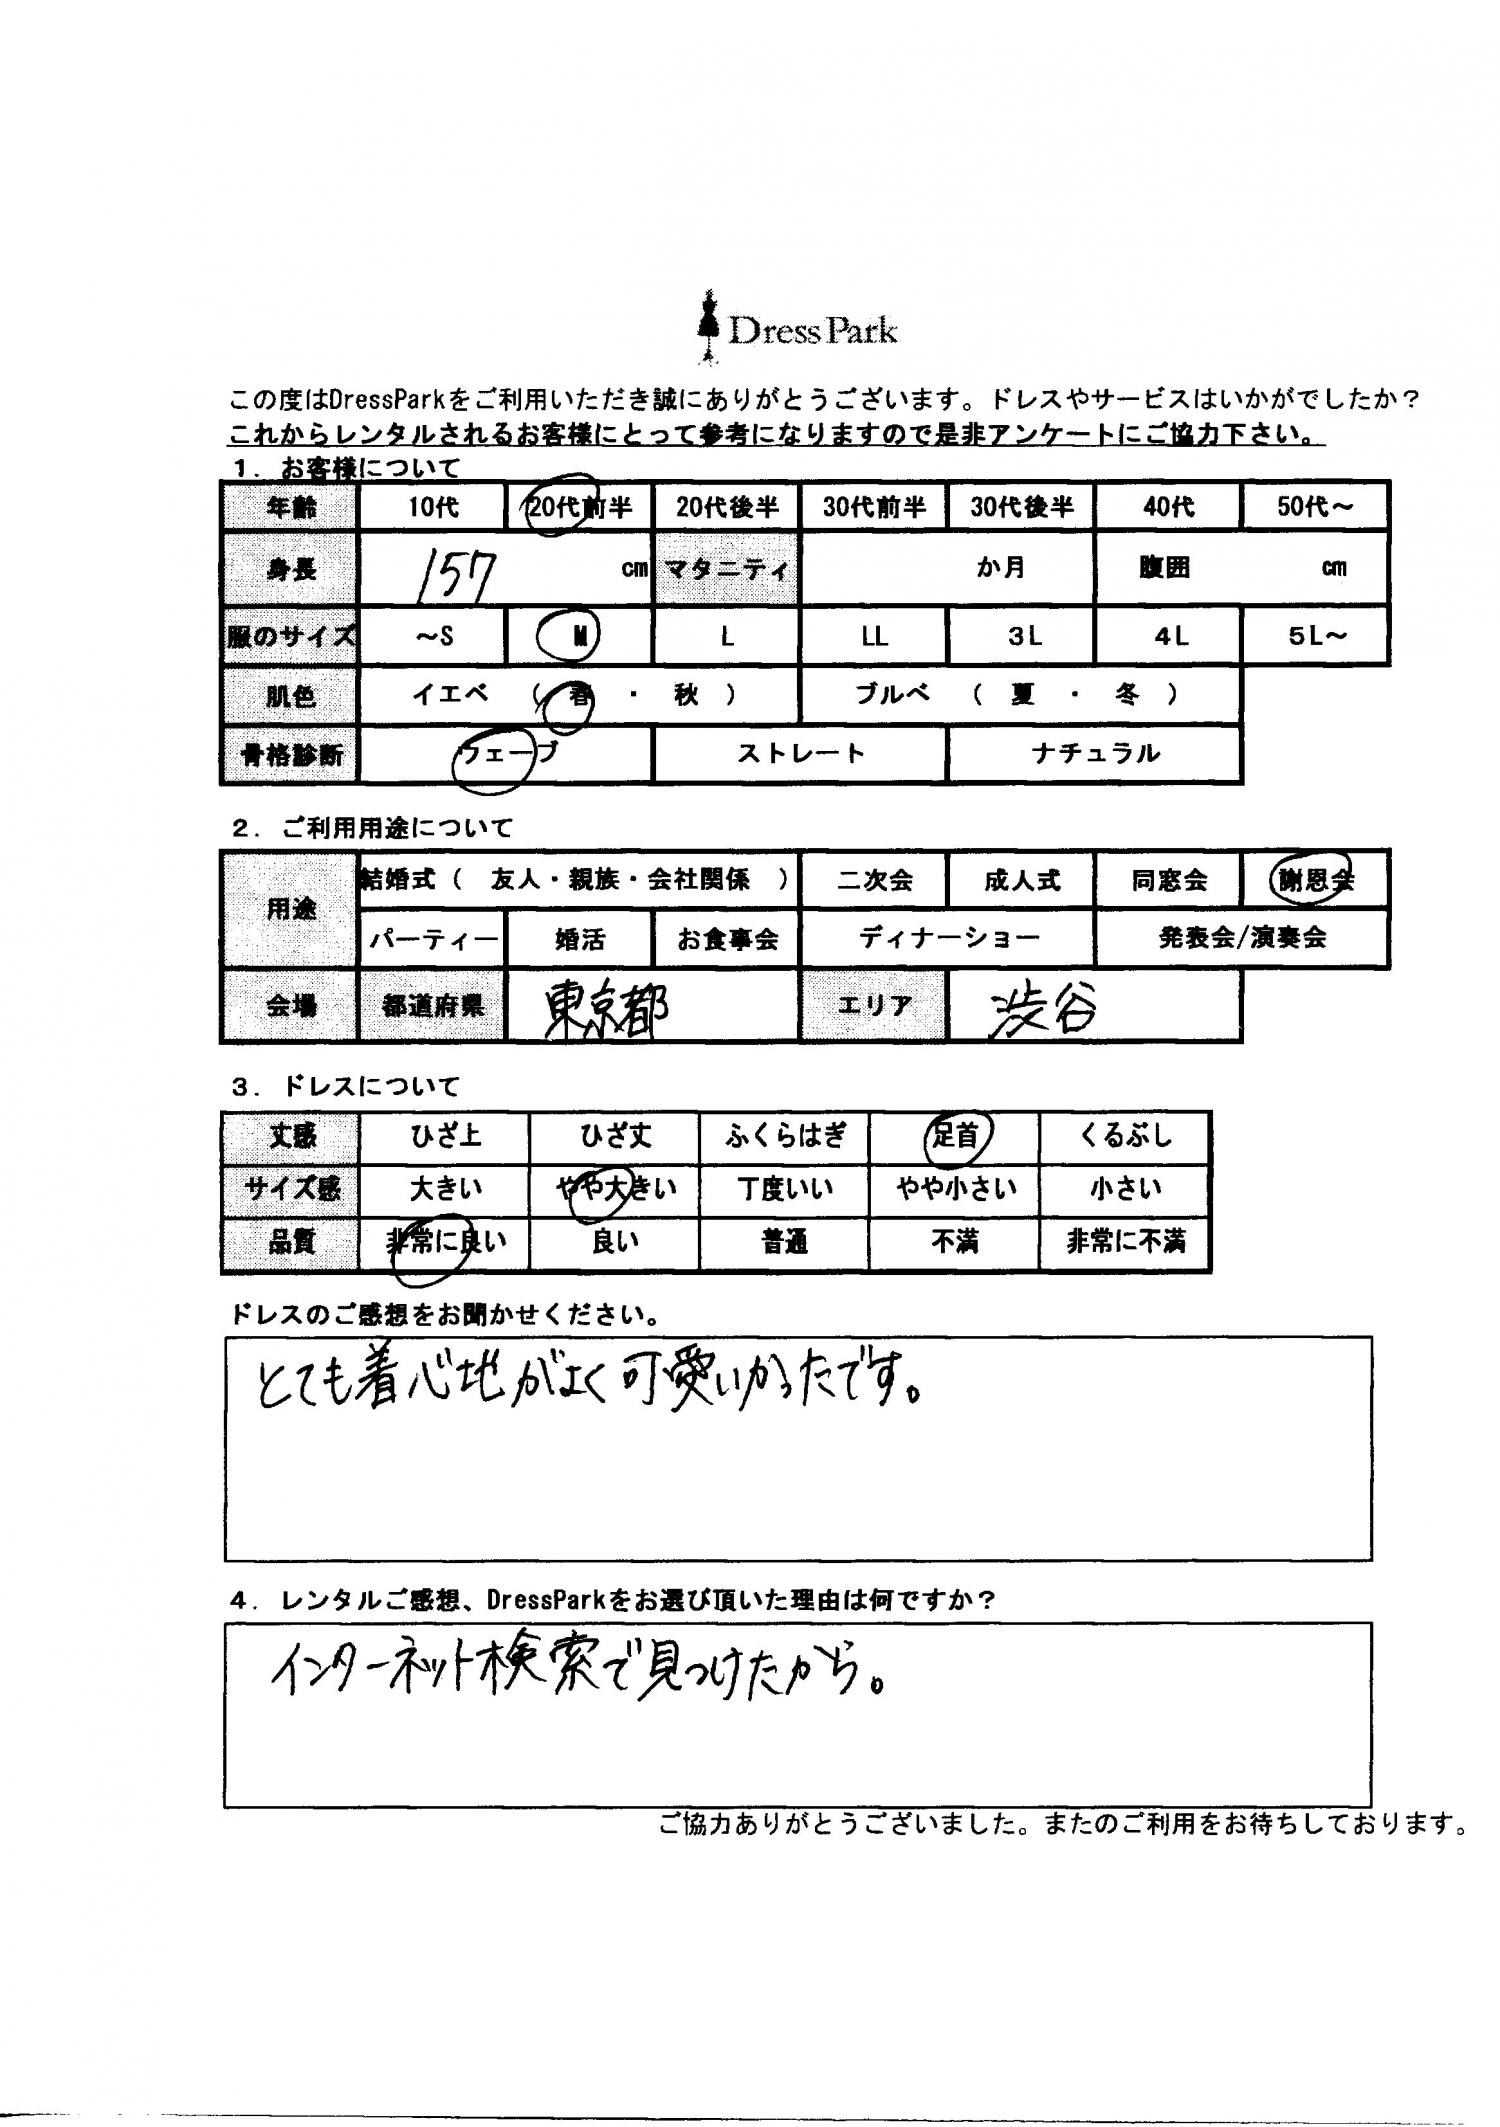 DressPark
この度はDressParkをご利用いただき誠にありがとうございます。ドレスやサービスはいかがでしたか？
これからレンタルされるお客様にとって参考になりますので是非アンケートにご協力下さい。
１．お客様について
年齢 10代 20代前半 20代後半 30代前半 30代後半 40代 50代～
身長 157 cm マタニティ か月 腹囲 cm
服のサイズ ～S M L LL 3L 4L 5L～
肌色 イエベ （ 春 ・ 秋 ） ブルベ （ 夏 ・ 冬 ）
骨格診断 ウェーブ ストレート ナチュラル
２．ご利用用途について
用途 結婚式（ 友人・親族・会社関係 ） 二次会 成人式 同窓会 謝恩会
パーティー 婚活 お食事会 ディナーショー 発表会/演奏会
会場 都道府県 東京都 エリア 渋谷
３．ドレスについて
丈感 ひざ上 ひざ丈 ふくらはぎ 足首 くるぶし
サイズ感 大きい やや大きい 丁度いい やや小さい 小さい
品質 非常に良い 良い 普通 不満 非常に不満
ドレスのご感想をお聞かせください。
とても着心地がよく可愛いかったです。
４．レンタルご感想、DressParkをお選び頂いた理由は何ですか？
インターネット検索で見つけたから。
ご協力ありがとうございました。またのご利用をお待ちしております。